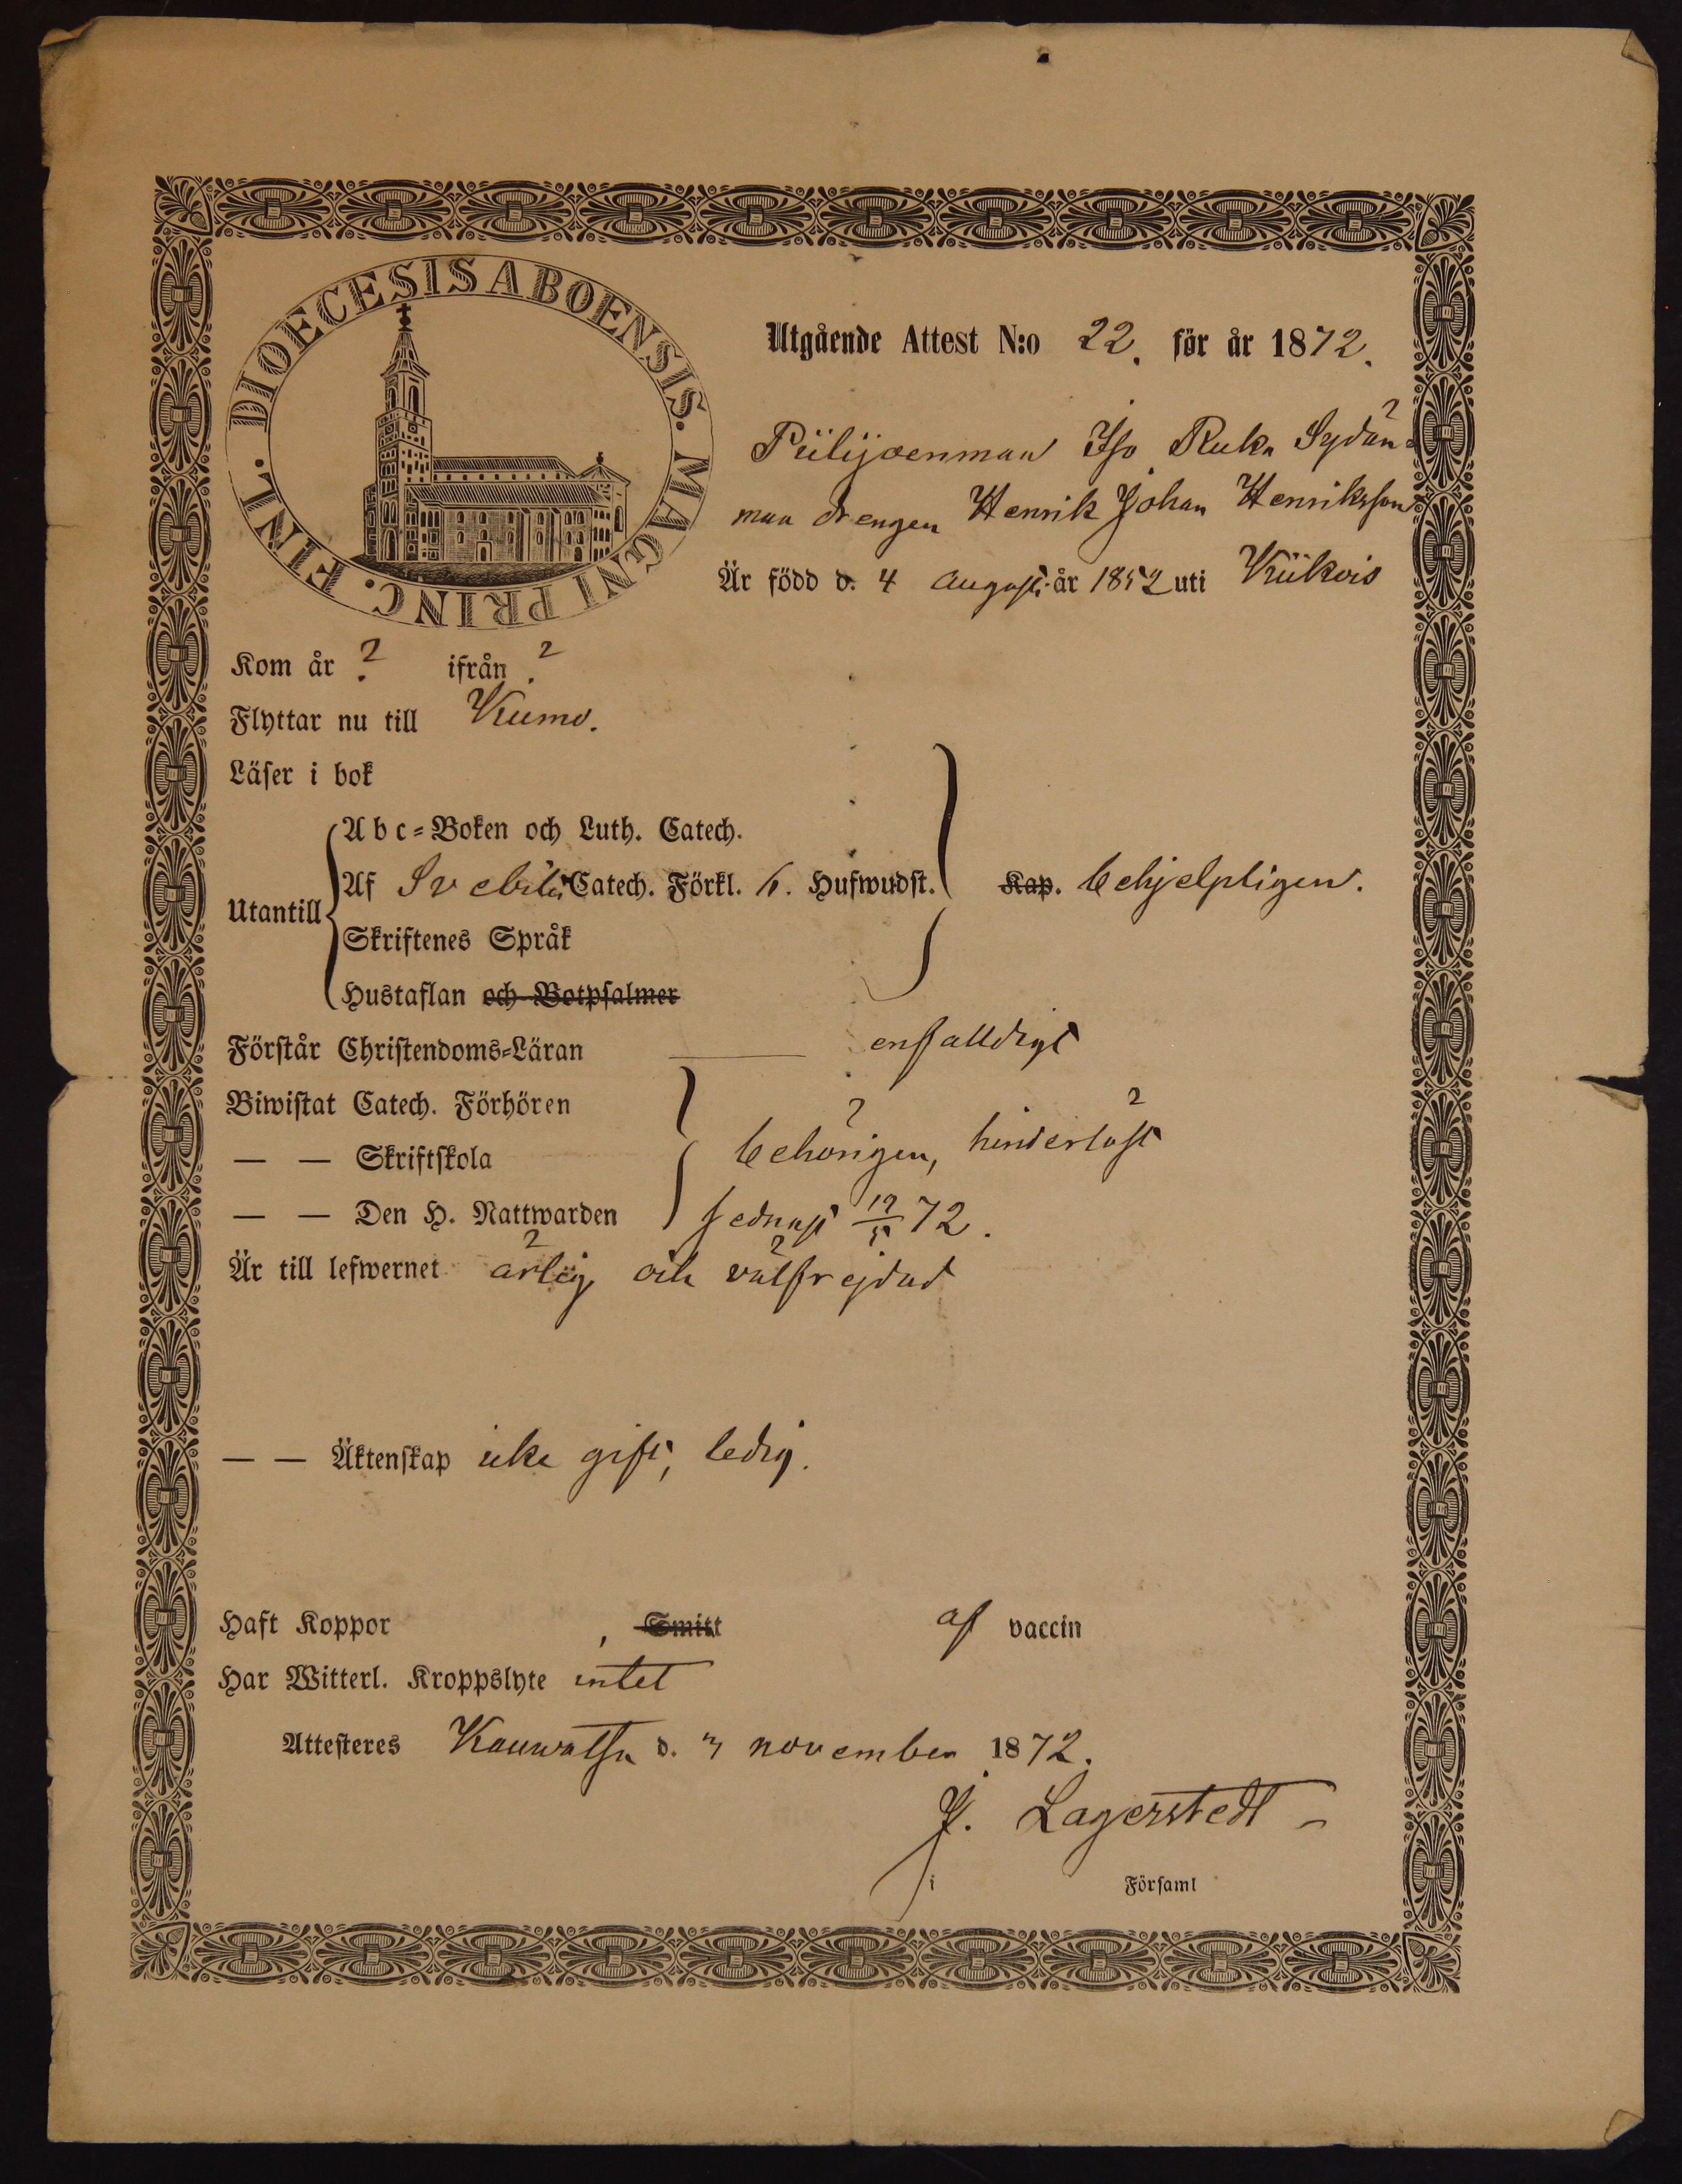 DIOECESIS ABOENSIS. MAGNI PRINC. FINL.
Utgående Attest N:o 22. för år 1872.
Piilijoenmaa Iso Ruka Sydän-
maa drengen Henrik Johan Henriksson
Är född d. 4 august. år 1852 uti Kiikois
Kom år ? ifrån ?
Flyttar nu till Kumo.
Läser i bok
Abc-Boken och Luth. Catech.
Utantill Af Svebilii Catech. Förkl. 6. Hufwudst. Kap. behjelpligen.
Skriftenes Språk
Hustaflan och Botpsalmer
Förstår Christendoms-Läran enfalldigt
Biwistat Catech. Förhören
— — Skriftskola behörigen, hinderlöst
— — Den H. Nattwarden sednast 19/5 72.
Är till lefwernet ärlig och välfrejdad
— — Äktenskap icke gift, ledig.
Haft Koppor , Smitt af vaccin
Har Witterl. Kroppslyte intet
Attesteres Kauwatsa d. november 1872.
J. Lagerstedt
i Församl